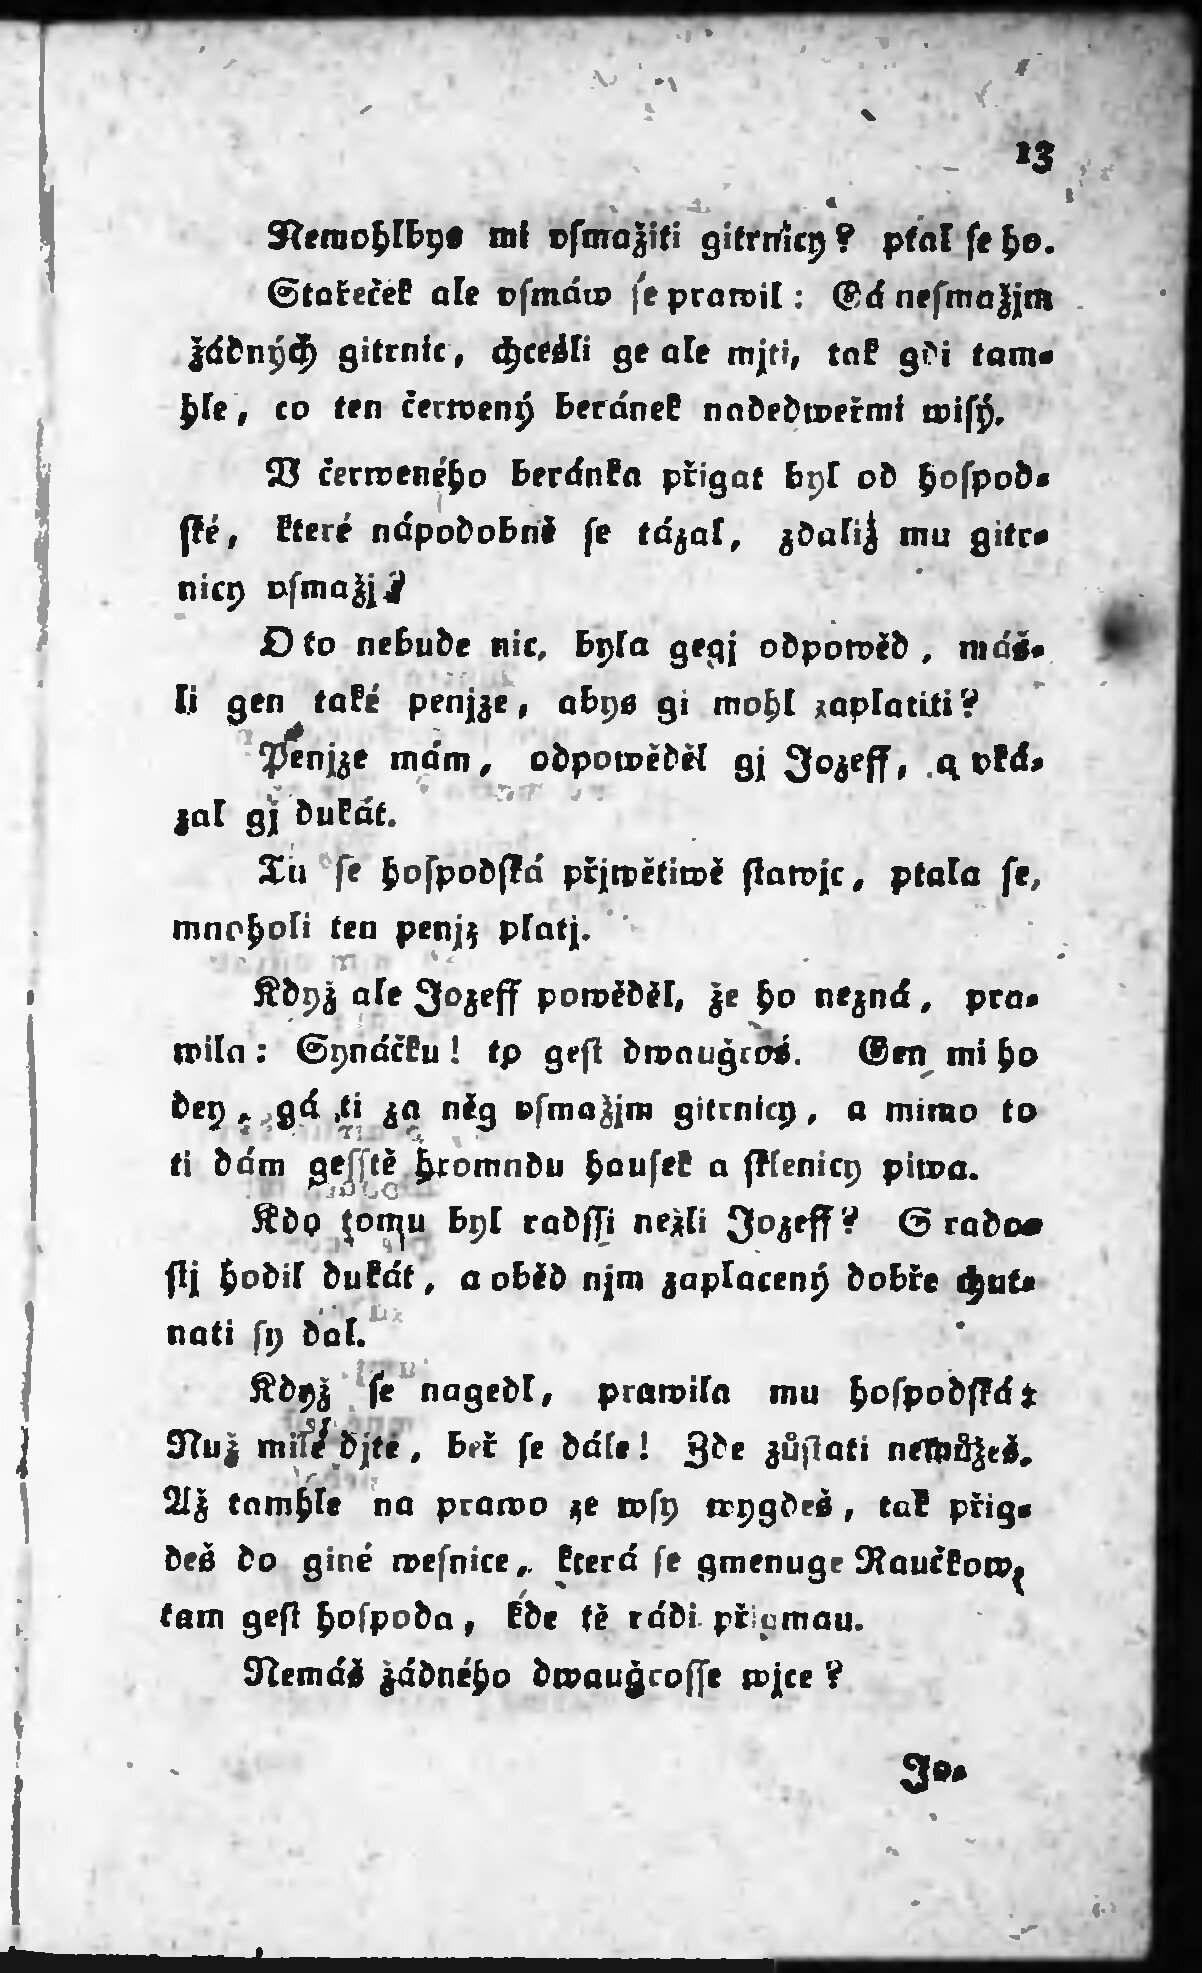 13
Nemohlbys mi vſmažiti gitrnicy? ptal ſe ho.
Stařeček ale vſmáw ſe prawil: Gá neſmažjm
žádných gitrnic, chcešli ge ale mjti, tak gdi tam-
hle, co ten čerwený beránek nadedweřmi wiſý.
V čerweného beránka přigat byl od hoſpod-
ſké, které nápodobně ſe tázal, zdaliž mu gitr-
nicy vſmažj?
O to nebude nic, byla gegj odpowěd, máš-
li gen také penjze, abys gi mohl zaplatiti?
Penjze mám, odpowěděl gj Jozeff, a vká-
zal gj dukát.
Tu ſe hoſpodſká přjwětiwě ſtawjc, ptala ſe,
mnoholi ten penjz platj.
Když ale Jozeff powěděl, že ho nezná, pra-
wila: Synáčku! to geſt dwauǧroš. Gen mi ho
dey, gá ti za něg vſmažjm gitrnicy, a mimo to
ti dám geſſtě hromndu hauſek a ſklenicy piwa.
Kdo tomu byl radſſi nežli Jozeff? S rado-
ſtj hodil dukát, a oběd njm zaplacený dobře chut-
nati ſy dal.
Když ſe nagedl, prawila mu hoſpodſká:
Nuž milé djtě, beř ſe dále! Zde zůſtati nemůžeš.
Až tamhle na prawo ze wſy wygdeš, tak přig-
deš do giné weſnice, která ſe gmenuge Raučkow,
tam geſt hoſpoda, kde tě rádi přigmau.
Nemáš žádného dwauǧroſſe wjce?
Jo-